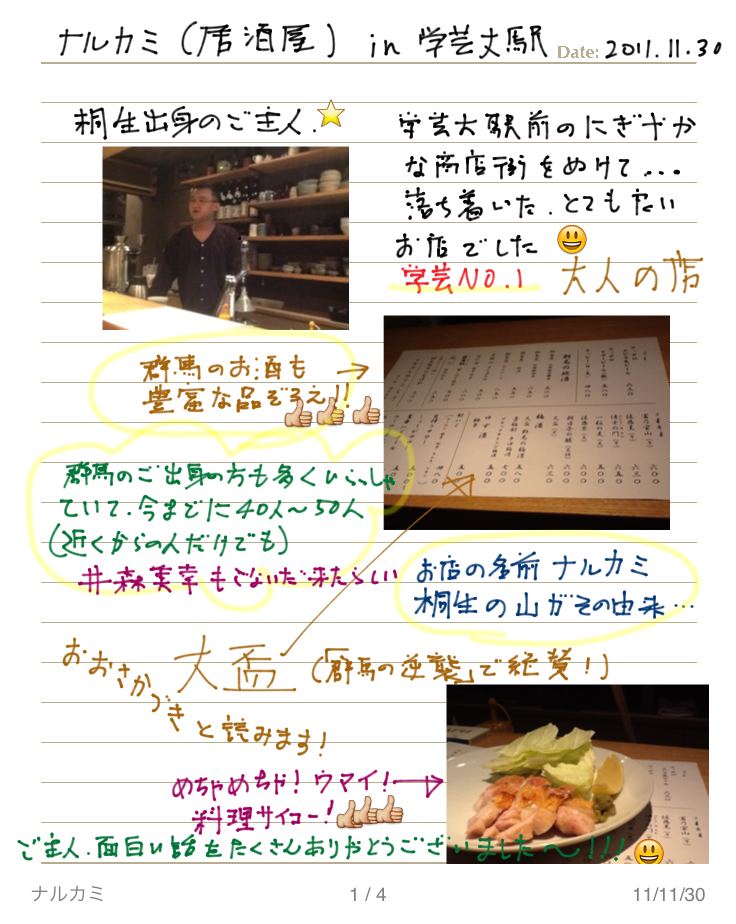 ナルカミ(居酒屋) in 学芸大駅 Date: 2011.11.30
桐生出身のご主人.
学芸大駅前のにぎやか
な商店街をぬけて...
落ち着いた.とても良い
お店でした
学芸NO.1 大人の店
群馬のお酒も
豊富な品ぞろえ!!
群馬の地酒
梅酒
ゆず酒
群馬のご出身の方も多くいらっしゃ
ていて.今までに40人~50人
(近くからの人だけでも)
井森美幸もこないだ来たらしい
お店の名前 ナルカミ
桐生の山がその由来...
おおさかづき 大盃 (「群馬の逆襲」で絶賛!)
と読みます!
めちゃめちゃ!ウマイ!
料理サイコー!
ご主人.面白い話をたくさんありがとうございました〜!!!
ナルカミ 1 / 4 11/11/30